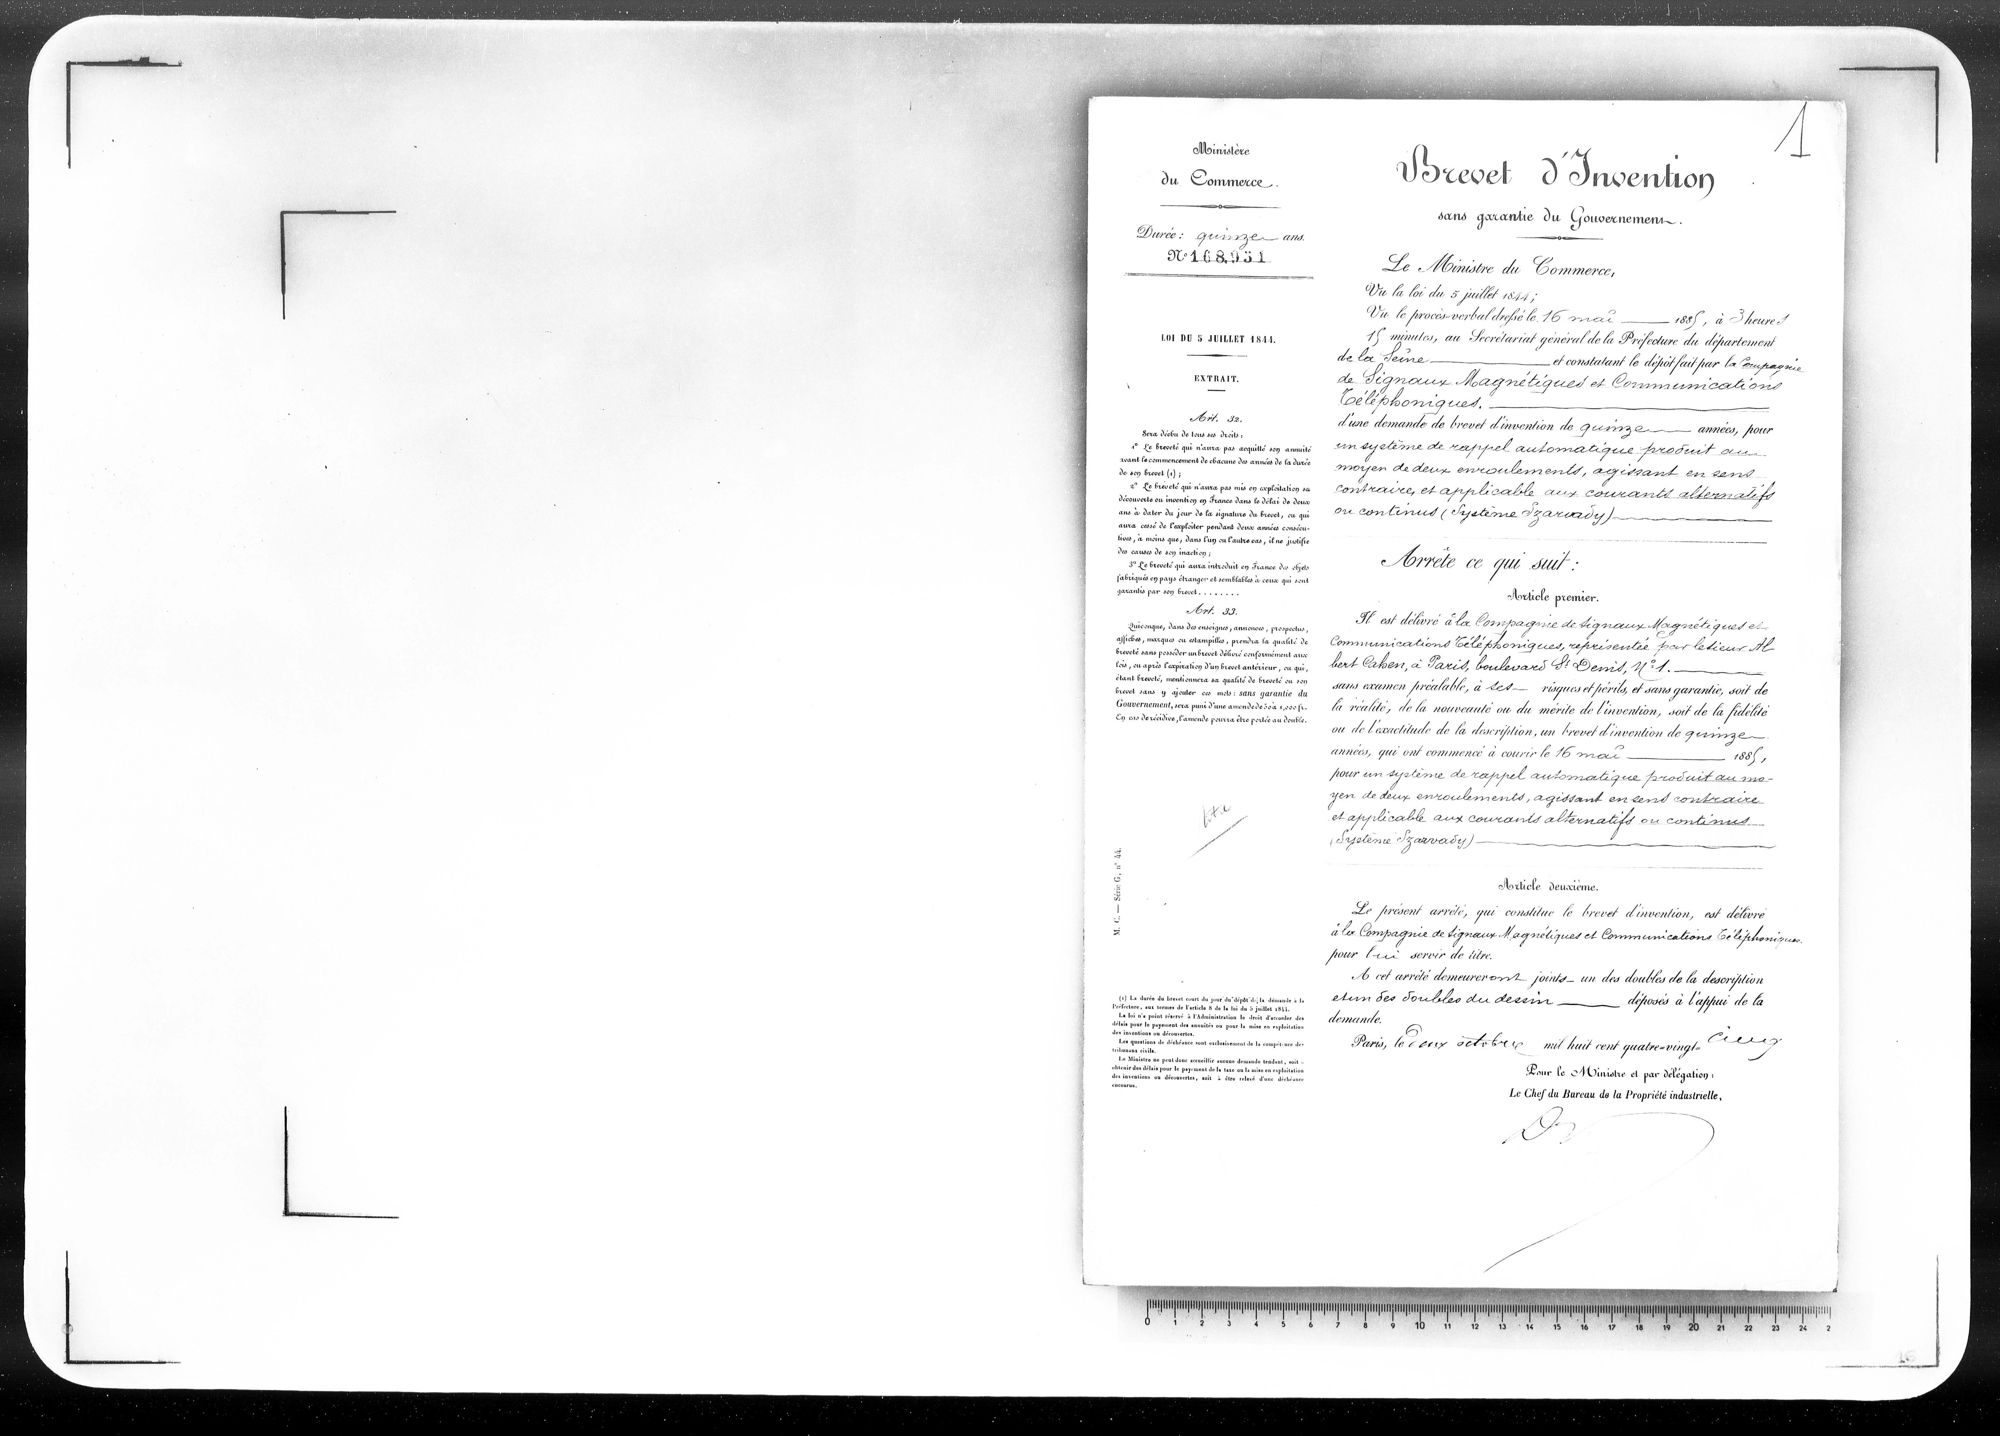 1
Ministère
du Commerce.
Durée : quinze ans.
N° 168,931
LOI DU 5 JUILLET 1844.
EXTRAIT.
Art. 32.
Sera déchu de tous ses droits :
1° Le breveté qui n'aura pas acquitté son annuité
avant le commencement de chacune des années de la durée
de son brevet (1) ;
2° Le breveté qui n'aura pas mis en exploitation sa
découverte ou invention en France dans le délai de deux
ans à dater du jour de la signature du brevet, ou qui
aura cessé de l'exploiter pendant deux années consécu-
tives, à moins que, dans l'un ou l'autre cas, il ne justifie
des causes de son inaction ;
3° Le breveté qui aura introduit en France des objets
fabriqués en pays étranger et semblables à ceux qui sont
garantis par son brevet . . . . . . . .
Art. 33.
Quiconque, dans des enseignes, annonces, prospectus,
affiches, marques ou estampilles, prendra la qualité de
breveté sans posséder un brevet délivré conformément aux
lois, ou après l'expiration d'un brevet antérieur, ou qui,
étant breveté, mentionnera sa qualité de breveté ou son
brevet sans y ajouter ces mots : sans garantie du
Gouvernement, sera puni d'une amende de 50 à 1,000 fr.
En cas de récidive, l'amende pourra être portée au double.
M. C. — Série G, n° 44.
(1) La durée du brevet court du jour du dépôt de la demande à la
Préfecture, aux termes de l'article 8 de la loi du 5 juillet 1844.
La loi n'a point réservé à l'Administration le droit d'accorder des
délais pour le payement des annuités ou pour la mise en exploitation
des inventions ou découvertes.
Les questions de déchéance sont exclusivement de la compétence des
tribunaux civils.
Le Ministre ne peut donc accueillir aucune demande tendant, soit à
obtenir des délais pour le payement de la taxe ou la mise en exploitation
des inventions ou découvertes, soit à être relevé d'une déchéance
encourue.
Brevet d'Invention
sans garantie du Gouvernement.
Le Ministre du Commerce,
Vu la loi du 5 juillet 1844 ;
Vu le procès-verbal dressé le 16 mai 1885, à 3 heures
15 minutes, au Secrétariat général de la Préfecture du département
de la Seine et constatant le dépôt fait par la Compagnie
de Signaux Magnétiques et Communications
Téléphoniques.
d'une demande de brevet d'invention de quinze années, pour
un système de rappel automatique produit au
moyen de deux enroulements, agissant en sens
contraire, et applicable aux courants alternatifs
ou continus (Système Szarvady)
Arrête ce qui suit :
Article premier.
Il est délivré à la Compagnie de Signaux Magnétiques et
Communications Téléphoniques, représentée par le sieur Al
bert Cahen, à Paris, boulevard St Denis, N° 1.
sans examen préalable, à ses risques et périls, et sans garantie, soit de
la réalité, de la nouveauté ou du mérite de l'invention, soit de la fidélité
ou de l'exactitude de la description, un brevet d'invention de quinze
années, qui ont commencé à courir le 16 mai 1885,
pour un système de rappel automatique produit au mo-
yen de deux enroulements, agissant en sens contraire
et applicable aux courants alternatifs ou continus
(Système Szarvady)
Article deuxième.
Le présent arrêté, qui constitue le brevet d'invention, est délivré
à la Compagnie de Signaux Magnétiques et Communications Téléphoniques.
pour lui servir de titre.
A cet arrêté demeureront joints un des doubles de la description
et un des doubles du dessin déposés à l'appui de la
demande.
Paris, le deux octobre mil huit cent quatre-vingt-cinq
Pour le Ministre et par délégation :
Le Chef du Bureau de la Propriété industrielle,
0 1 2 3 4 5 6 7 8 9 10 11 12 13 14 15 16 17 18 19 20 21 22 23 24 2
16